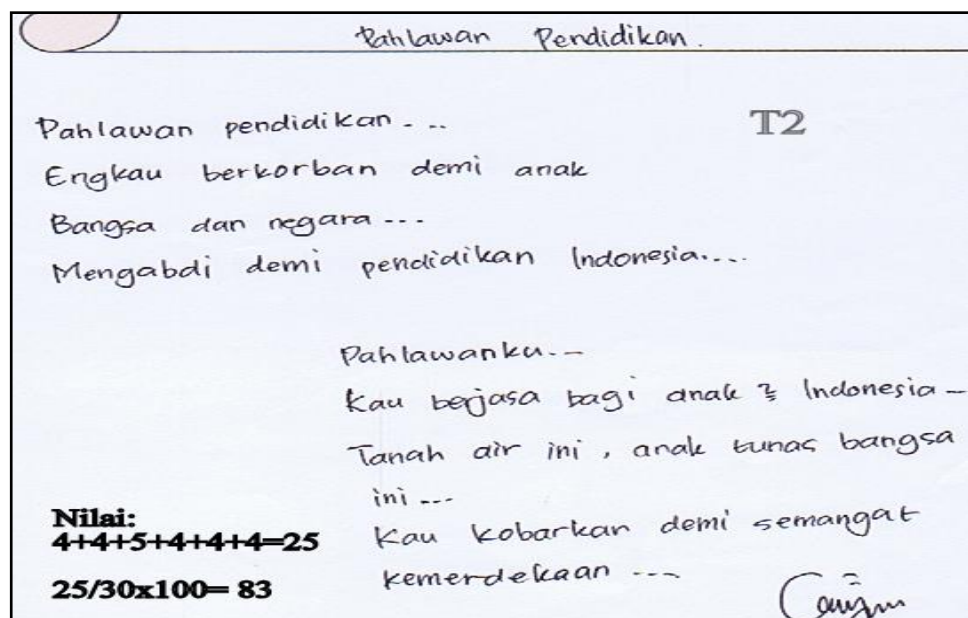 Pahlawan Pendidikan.
T2
Pahlawan pendidikan...
Engkau berkorban demi anak
Bangsa dan negara...
Mengabdi demi pendidikan Indonesia....
Pahlawanku...
Kau berjasa bagi anak2 Indonesia-
Tanah air ini, anak tunas bangsa
ini...
Kau kobarkan demi semangat
kemerdekaan ...
Nilai:
4+4+5+4+4+4=25
25/30x100= 83